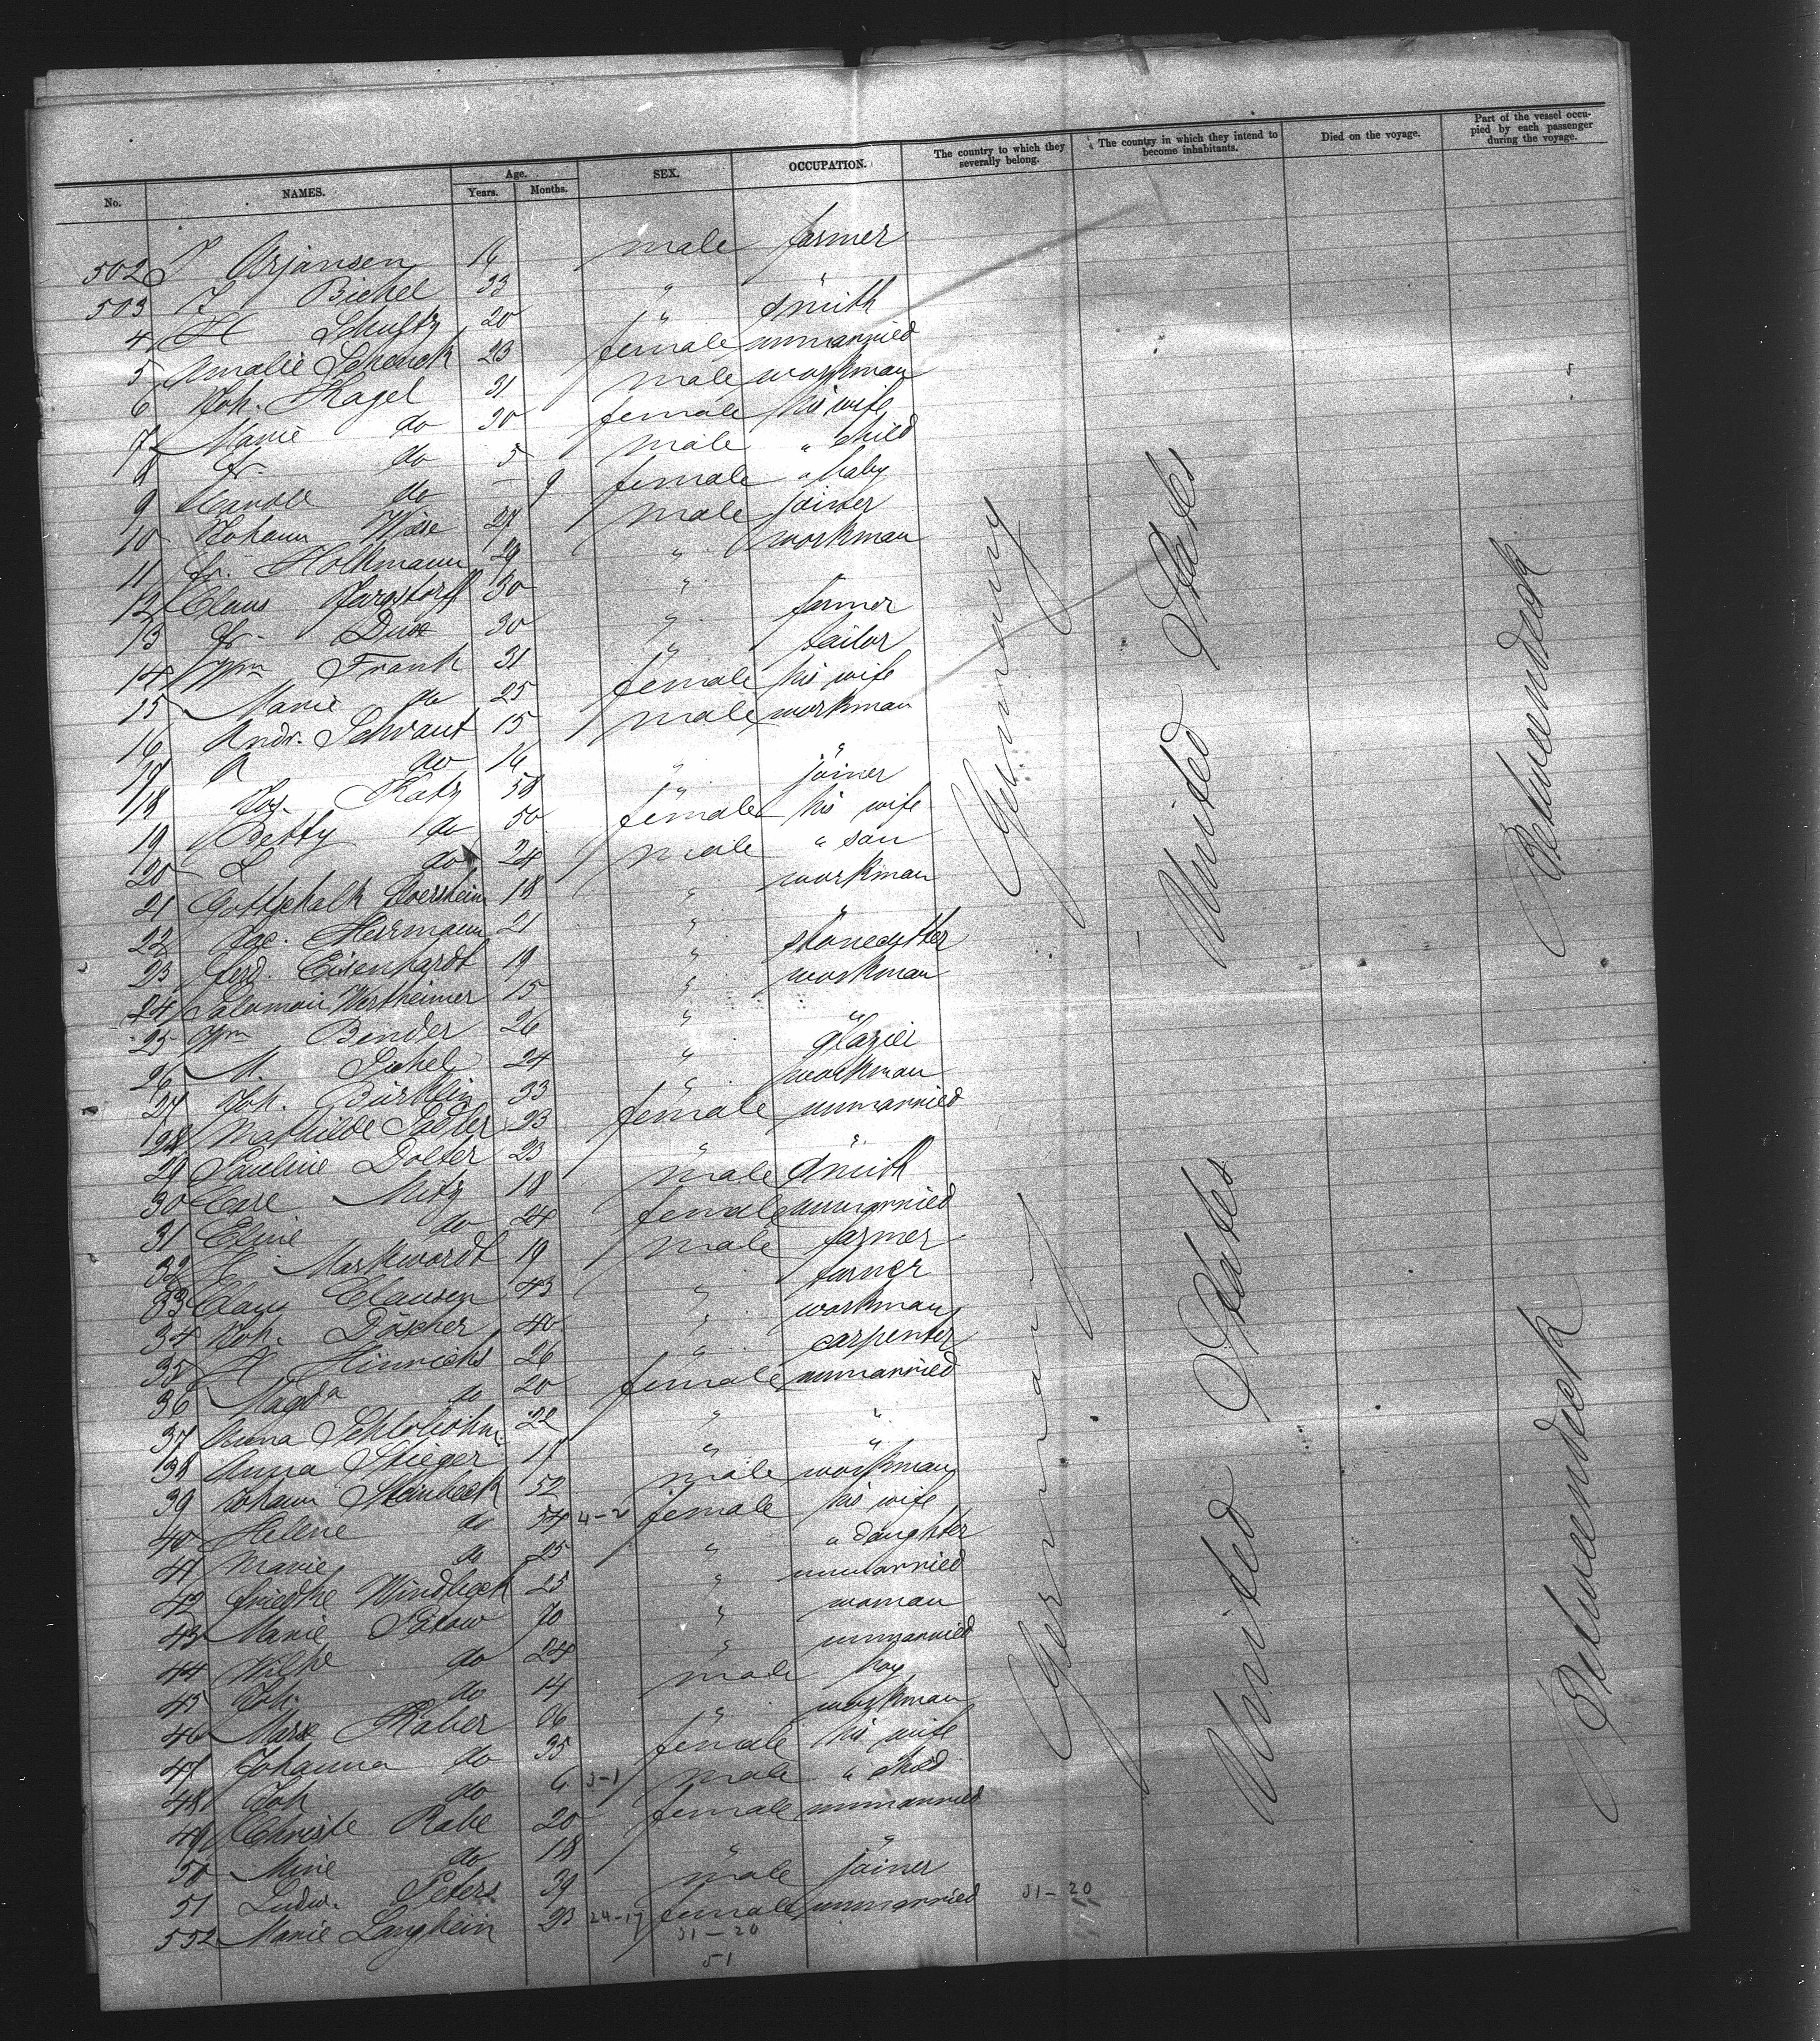 No. NAMES. Age. Years. Months. SEX. OCCUPATION. The country to which they severally belong. The country in which they intend to become inhabitants. Died on the voyage. Part of the vessel occupied by each passenger during the voyage.
502 J Arjansen 16 male farmer
503 F Bichel 33 "
4 H Schultz 20 " smith
5 Amalie Schenck 23 female unmarried
6 Joh. Kagel 31 male workman
7 Marie do 30 female his wife
8 Fr. do 5 male " child
9 do - 9 female " baby
10 Johann Wiese 27 male joiner
11 Fr. Holtmann 29 " workman
12 Claus 30 "
13 Fr. 30 " farmer
14 Wm Frank 31 " tailor
15 Marie do 25 female his wife
16 Andr. Schwart 15 male workman
17 A do 16 " "
18 Jos. Katz 58 " joiner
19 Betty do 50 female his wife
20 L do 24 male " son
21 Gottschalk 18 " workman
22 Jac. Herrmann 21 " "
23 Ferd. Eisenhardt 19 " stonecutter
24 Salamon Wertheimer 15 " workman
25 Wm Binder 26 " "
26 M. Sichel 24 " glazier
27 Joh. Bürklin 33 " workman
28 Mathilde Sadler 23 female unmarried
29 Pauline Dolter 23 " "
30 Carl Mitz 18 male smith
31 Eline do 24 female unmarried
32 H Markwordt 19 male farmer
33 Claus Clausen 43 "
34 Joh. Döscher 40 " workman
35 H Hinrichs 26 " carpenter
36 Magda do 20 female unmarried
37 Anna 22 " "
38 Anna Stieger 17 " "
39 Johann Steinbeck 52 male workman
40 Helene do 54 4-2 female his wife
41 Marie do 25 " " daughter
42 Friedke Windbeck 25 " unmarried
43 Marie 70 " woman
44 Wilhe do 24 " unmarried
45 Joh. do 14 male boy
46 Marx Kaber 36 " workman
47 Johanna do 35 female his wife
48 Joh do 6 3-1 male " child
49 Christe Rabe 20 female unmarried
50 Mine do 18 " "
51 Ludw. Peters 39 male joiner
552 Marie Langhein 23 24-17 female unmarried 31-20
31-20
51
Germany
United States
Betweendeck
Germany
United States
Betweendeck